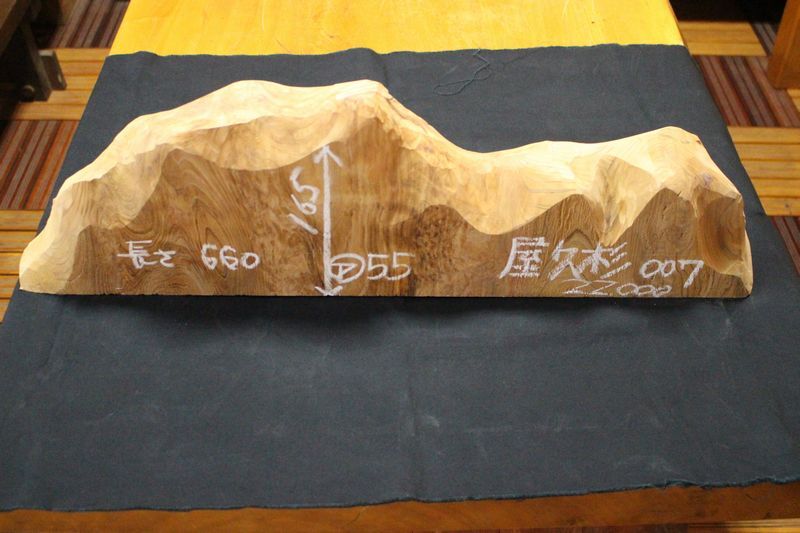 長さ 660
165
㋐55
屋久杉 007
22.000